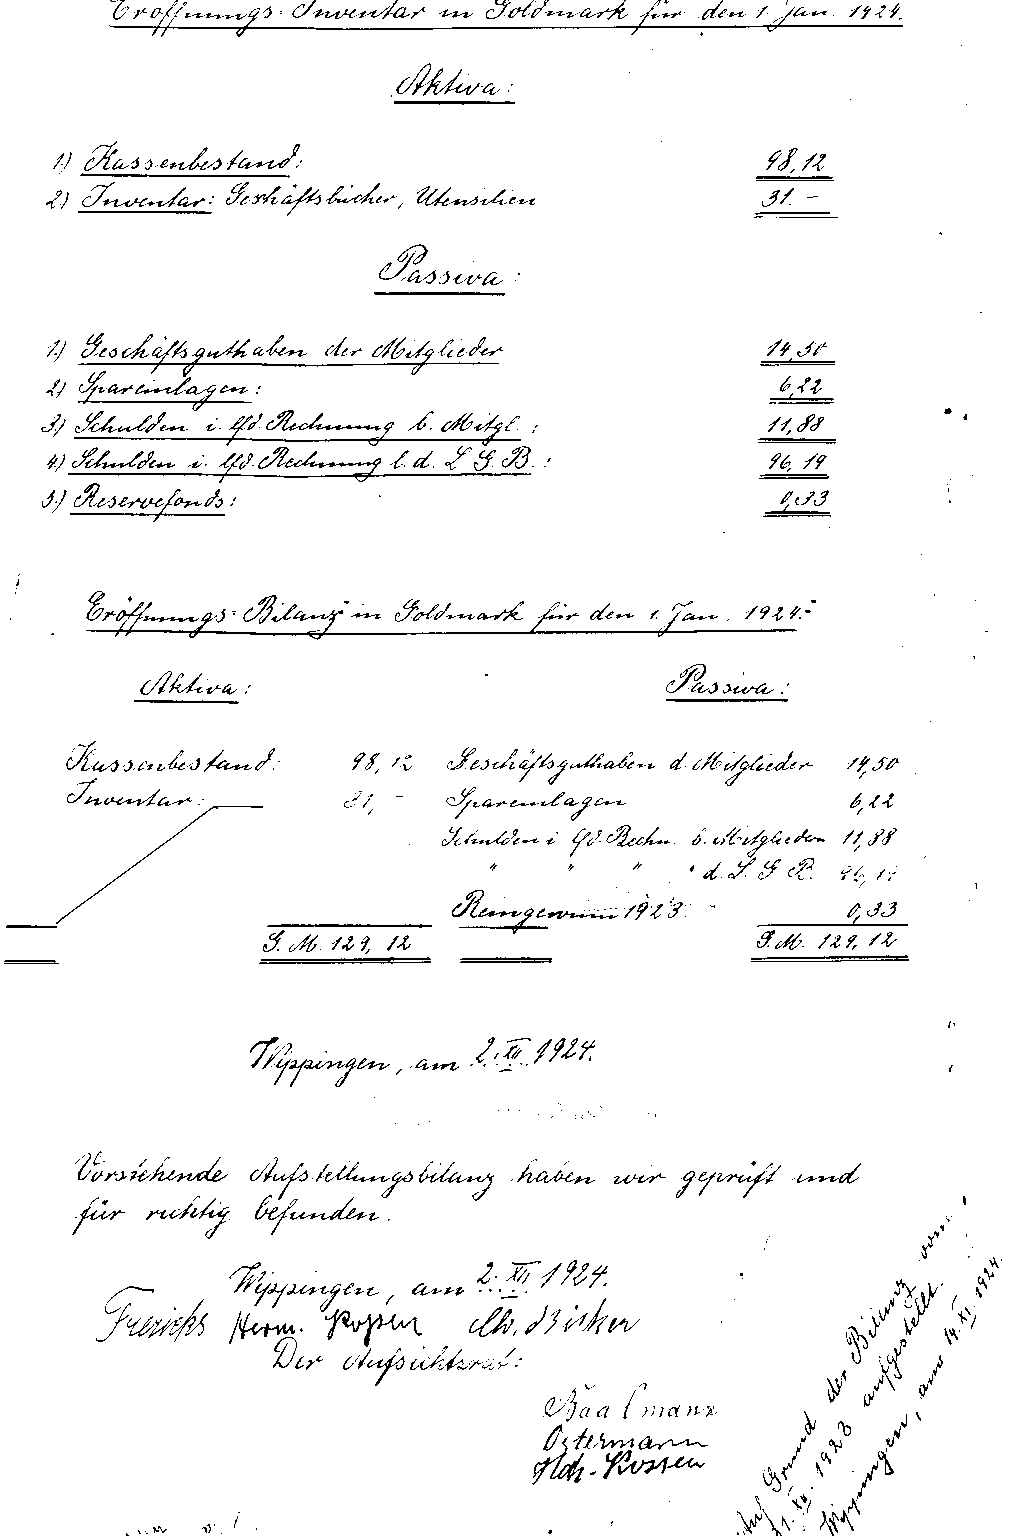 Eröffnungs-Inventar in Goldmark für den 1. Jan. 1924.
Aktiva:
1.) Kassenbestand: 98,12
2.) Inventar: Geschäftsbücher, Utensilien 31.–
Passiva:
1.) Geschäftsguthaben der Mitglieder 14,50
2.) Spareinlagen: 6,22
3.) Schulden i. lfd. Rechnung b. Mitgl.: 11,88
4.) Schulden i. lfd. Rechnung b. d. L. G. B.: 96,19
5.) Reservefonds: 0,33
Eröffnungs-Bilanz in Goldmark für den 1. Jan. 1924.-
Aktiva: Passiva:
Kassenbestand: 98,12 Geschäftsguthaben d. Mitglieder 14,50
Inventar: 31,– Spareinlagen 6,22
Schulden i. lfd. Rechn. b. Mitglieder 11,88
" " " " d. L. G. B. 96,19
Reingewinn 1923. 0,33
G. M. 129,12 G. M. 129,12
Wippingen, am 2. XII. 1924.
Vorstehende Aufstellungsbilanz haben wir geprüft und
für richtig befunden.
Wippingen, am 2. XII. 1924.
Frericks Herm. Kossen
Der Aufsichtsrat:
Ostermann
Hch. Kossen
Auf Grund der Bilanz vom
31. XII. 1923 aufgestellt.
Wippingen, am 14. XI. 1924.